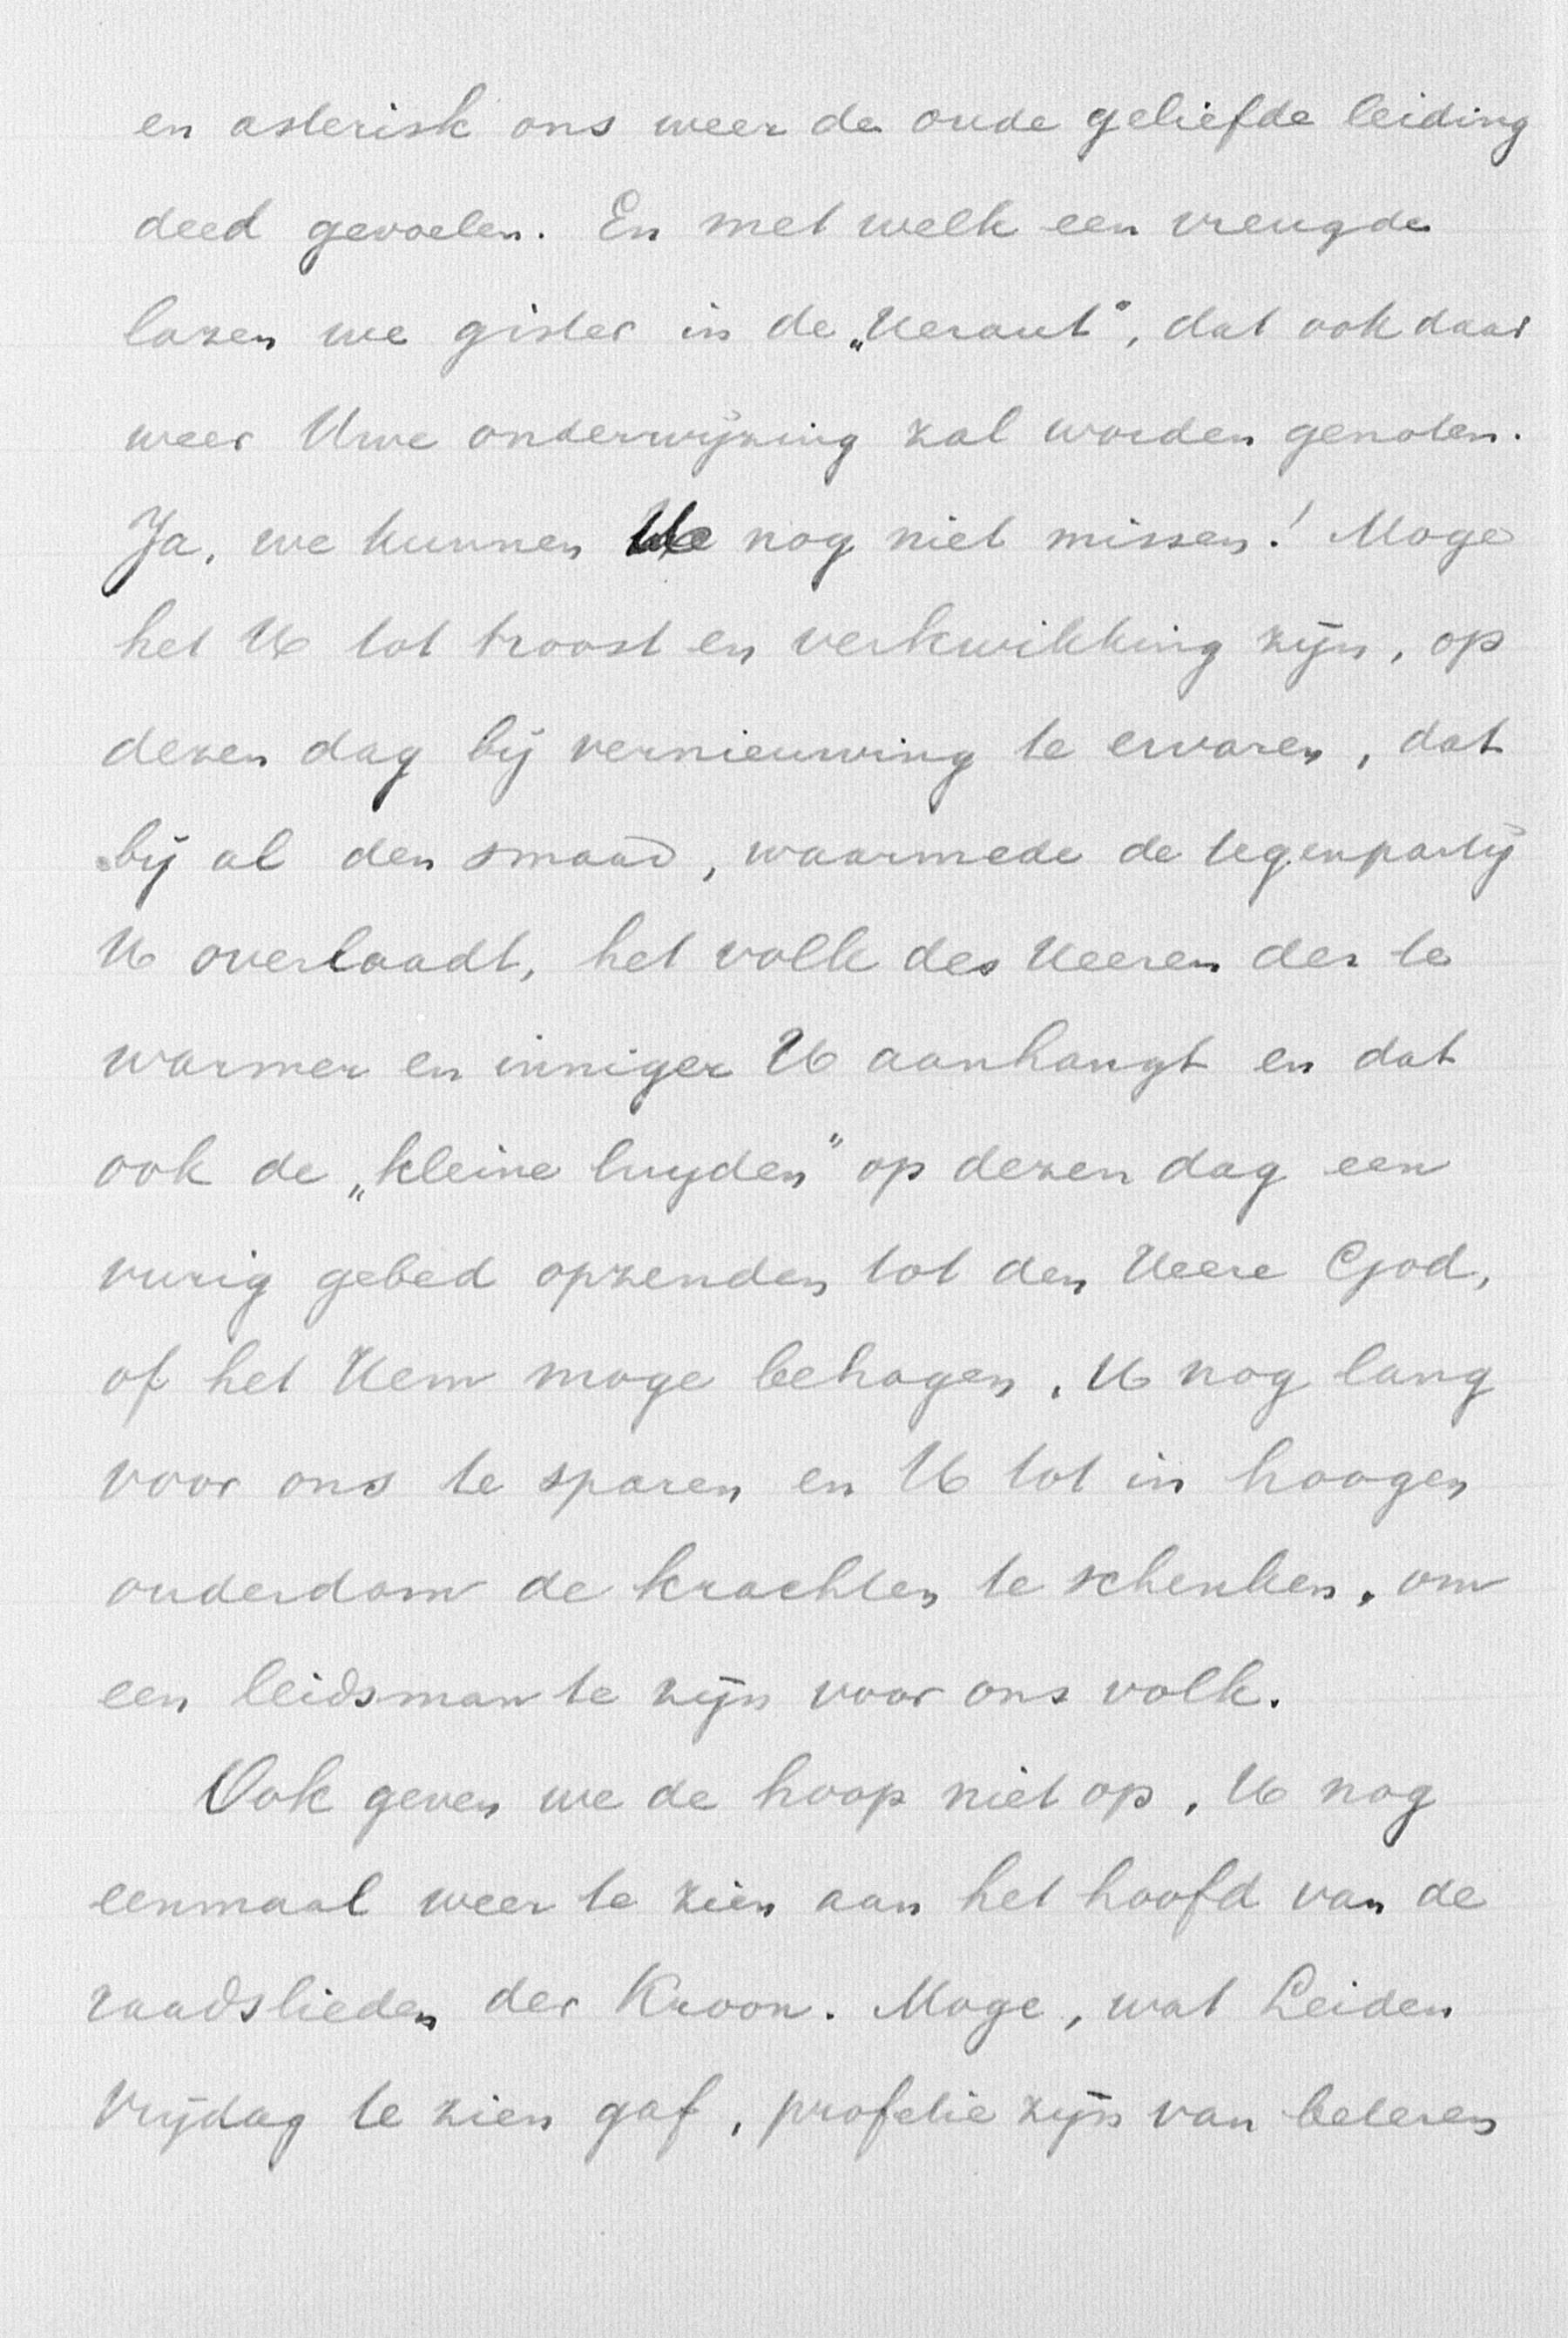 en asterisk ons weer de oude geliefde leiding
deed gevoelen. En met welk een vreugde
lazen we gister in de „Heraut", dat ook daar
weer Uwe onderwijzing zal worden genoten.
Ja, we kunnen U nog niet missen! Moge
het U tot troost en verkwikking zijn, op
dezen dag bij vernieuwing te ervaren, dat
bij al den smaad, waarmede de tegenpartij
U overlaadt, het volk des Heeren der te
warmer en inniger U aanhangt en dat
ook de „kleine luyden" op dezen dag een
vurig gebed opzenden tot den Heere God,
of het Hem moge behagen, U nog lang
voor ons te sparen en U tot in hoogen
ouderdom de krachten te schenken, om
een leidsman te zijn voor ons volk.
Ook geven we de hoop niet op, U nog
eenmaal weer te zien aan het hoofd van de
raadslieden der Kroon. Moge, wat Leiden
Vrijdag te zien gaf, profetie zijn van beteren